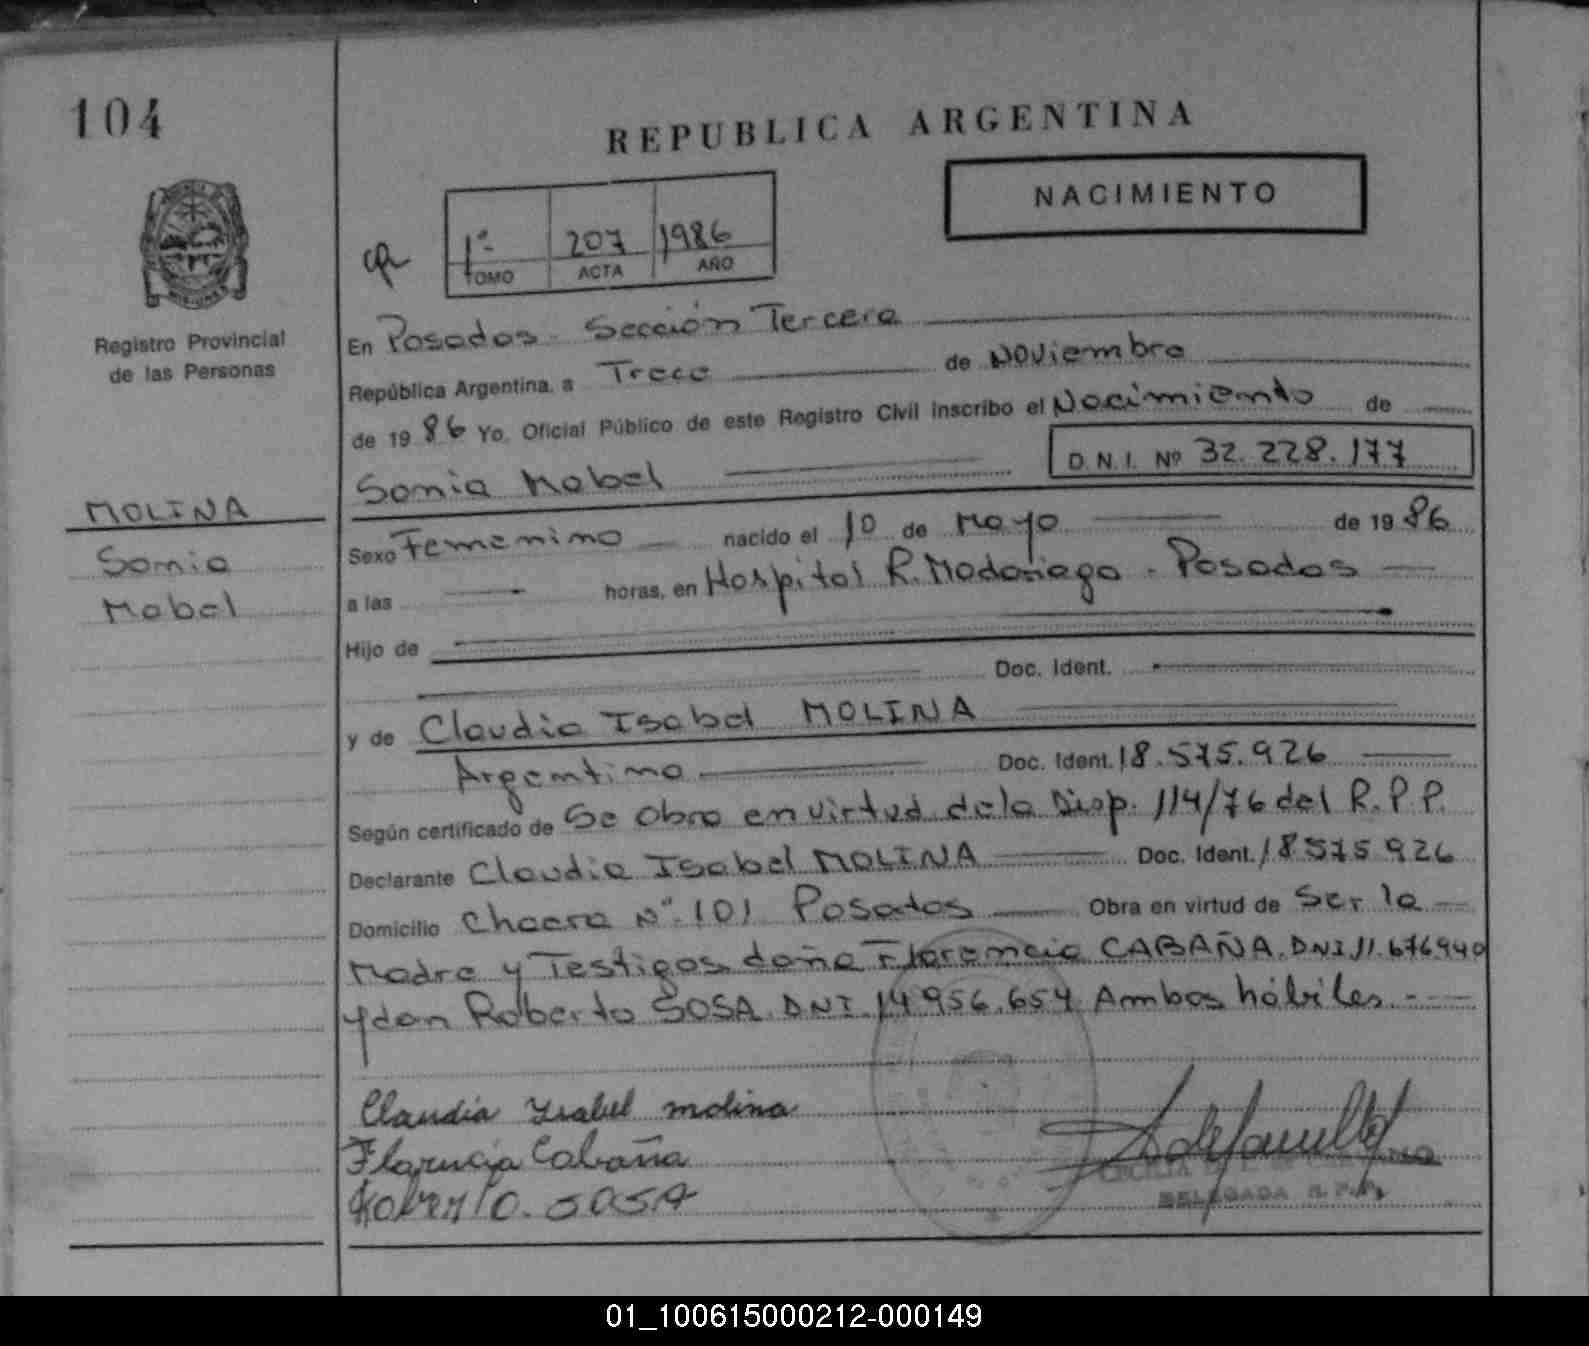 104
REPUBLICA ARGENTINA
NACIMIENTO
1º 207 1986
TOMO ACTA AÑO
Registro Provincial
de las Personas
MOLINA
Sonia
Mabel
En Posadas - Sección Tercera
República Argentina, a Trece de Noviembre
de 19 86 Yo, Oficial Público de este Registro Civil inscribo el Nacimiento de
Sonia Mabel D.N.I. Nº 32.228.177
Sexo Femenino nacido el 10 de Mayo de 19 86
a las horas, en Hospital R. Madariaga - Posadas
Hijo de
Doc. Ident.
y de Claudia Isabel MOLINA
Argentina Doc. Ident. 18.575.926
Según certificado de Se Obra en virtud de la Disp. 114/76 del R.P.P.
Declarante Claudia Isabel MOLINA Doc. Ident. 18575926
Domicilio Chacra Nº 101 Posadas Obra en virtud de Ser la
Madre y Testigos doña Florencia CABAÑA. DNI 11.676940
y don Roberto SOSA. DNI. 14.956.654 Ambos hábiles
Claudia Ysabel molina
Florencia Cabaña
Roberto. SOSA
DELEGADA R.P.P.
01_100615000212-000149